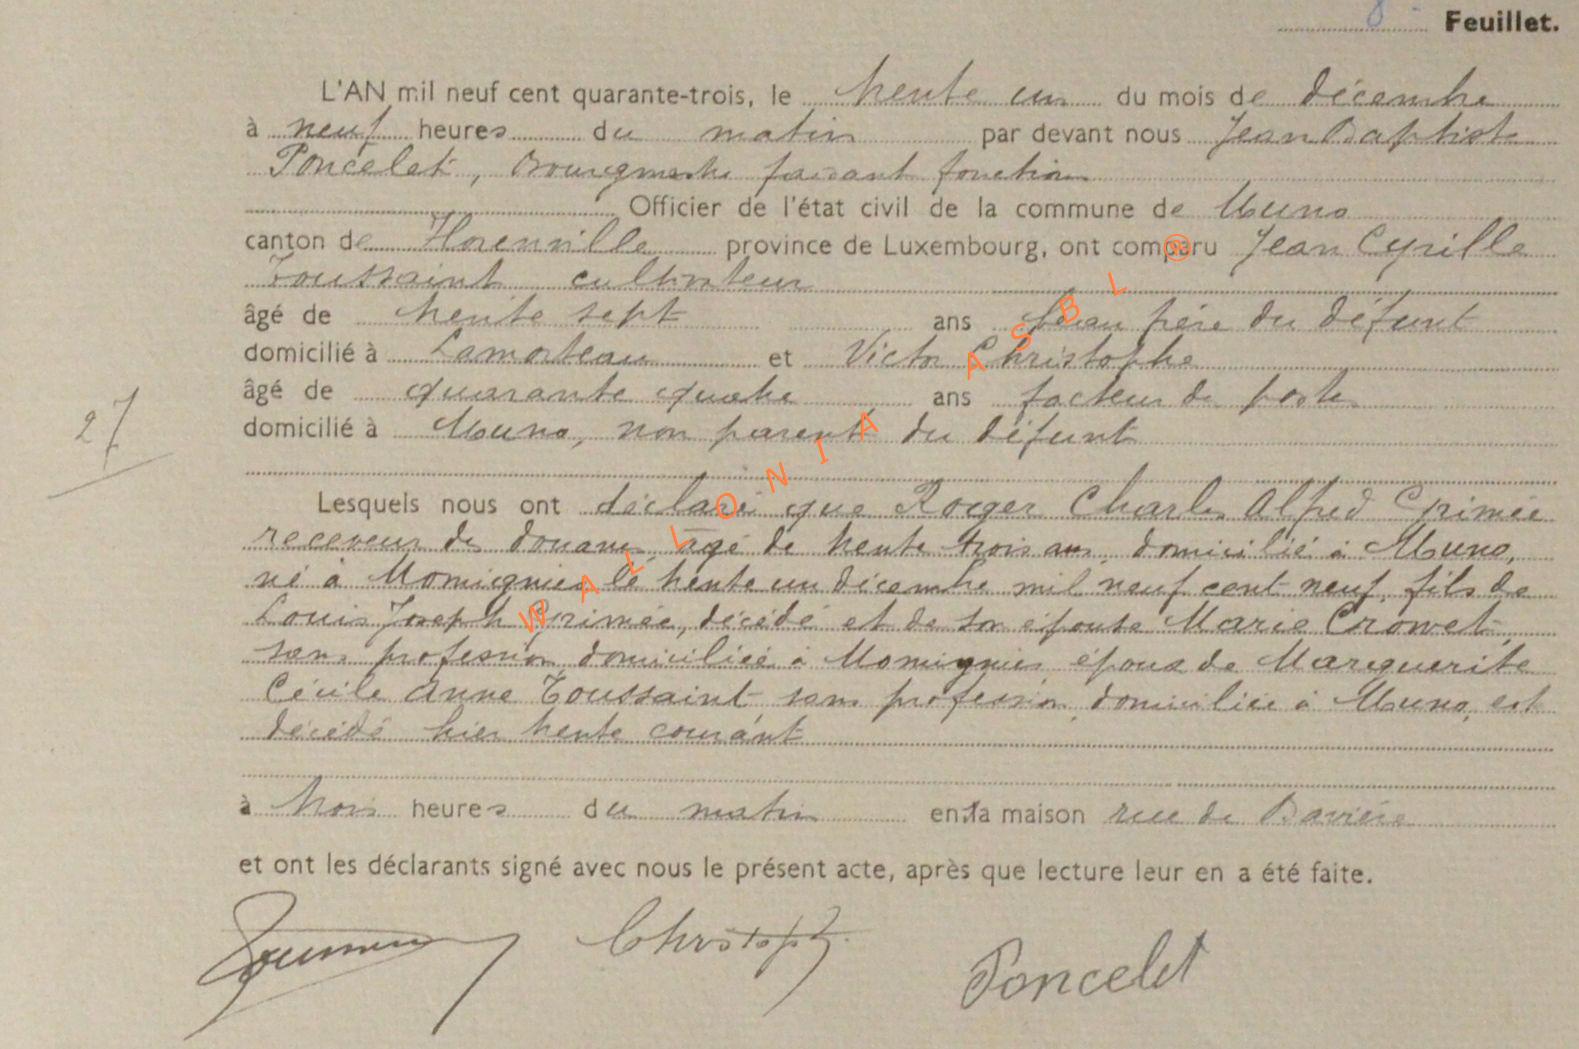 8 Feuillet.
L'AN mil neuf cent quarante-trois, le trente un du mois de décembre
à neuf heures du matin par devant nous Jean Baptiste
Poncelet, Bourgmestre faisant fonction
Officier de l'état civil de la commune de Muno
canton de Florenville province de Luxembourg, ont comparu Jean Cyrille
Toussaint cultivateur
âgé de trente sept ans beau frère du défunt
domicilié à Lamorteau et Victor Christophe
âgé de quarante quatre ans facteur des postes
domicilié à Muno, non parent du défunt
27
Lesquels nous ont déclaré que Roger Charles Alfred Grimée
receveur des douanes âgé de trente trois ans, domicilié à Muno,
né à Momignies le trente un décembre mil neuf cent neuf, fils de
Louis Joseph Grimée, décédé et de son épouse Marie Crowet,
sans profession domiciliée à Momignies époux de Marguerite
Cécile Anne Toussaint sans profession, domiciliée à Muno, est
décédé hier trente courant
à trois heures du matin en la maison rue de Bavière
et ont les déclarants signé avec nous le présent acte, après que lecture leur en a été faite.
Christophe
Poncelet
WALLONIA ASBL ®